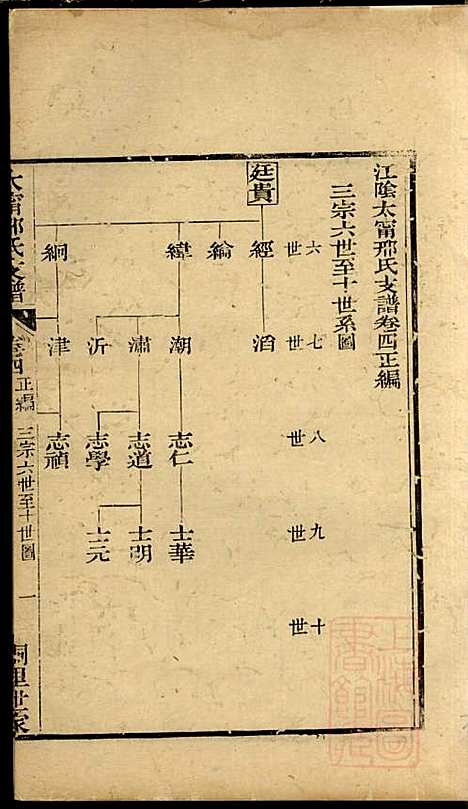 江陰太甯邢氏支譜卷四正編
三宗六世至十世系圖
六世
七世
八世
九世
十世
廷貴
經
綸
緯
絅
滔
潮
瀟
沂
津
志仁
志道
志學
志禎
士華
士明
士元
太甯邢氏支譜
卷四
正編
三宗六世至十世圖
一